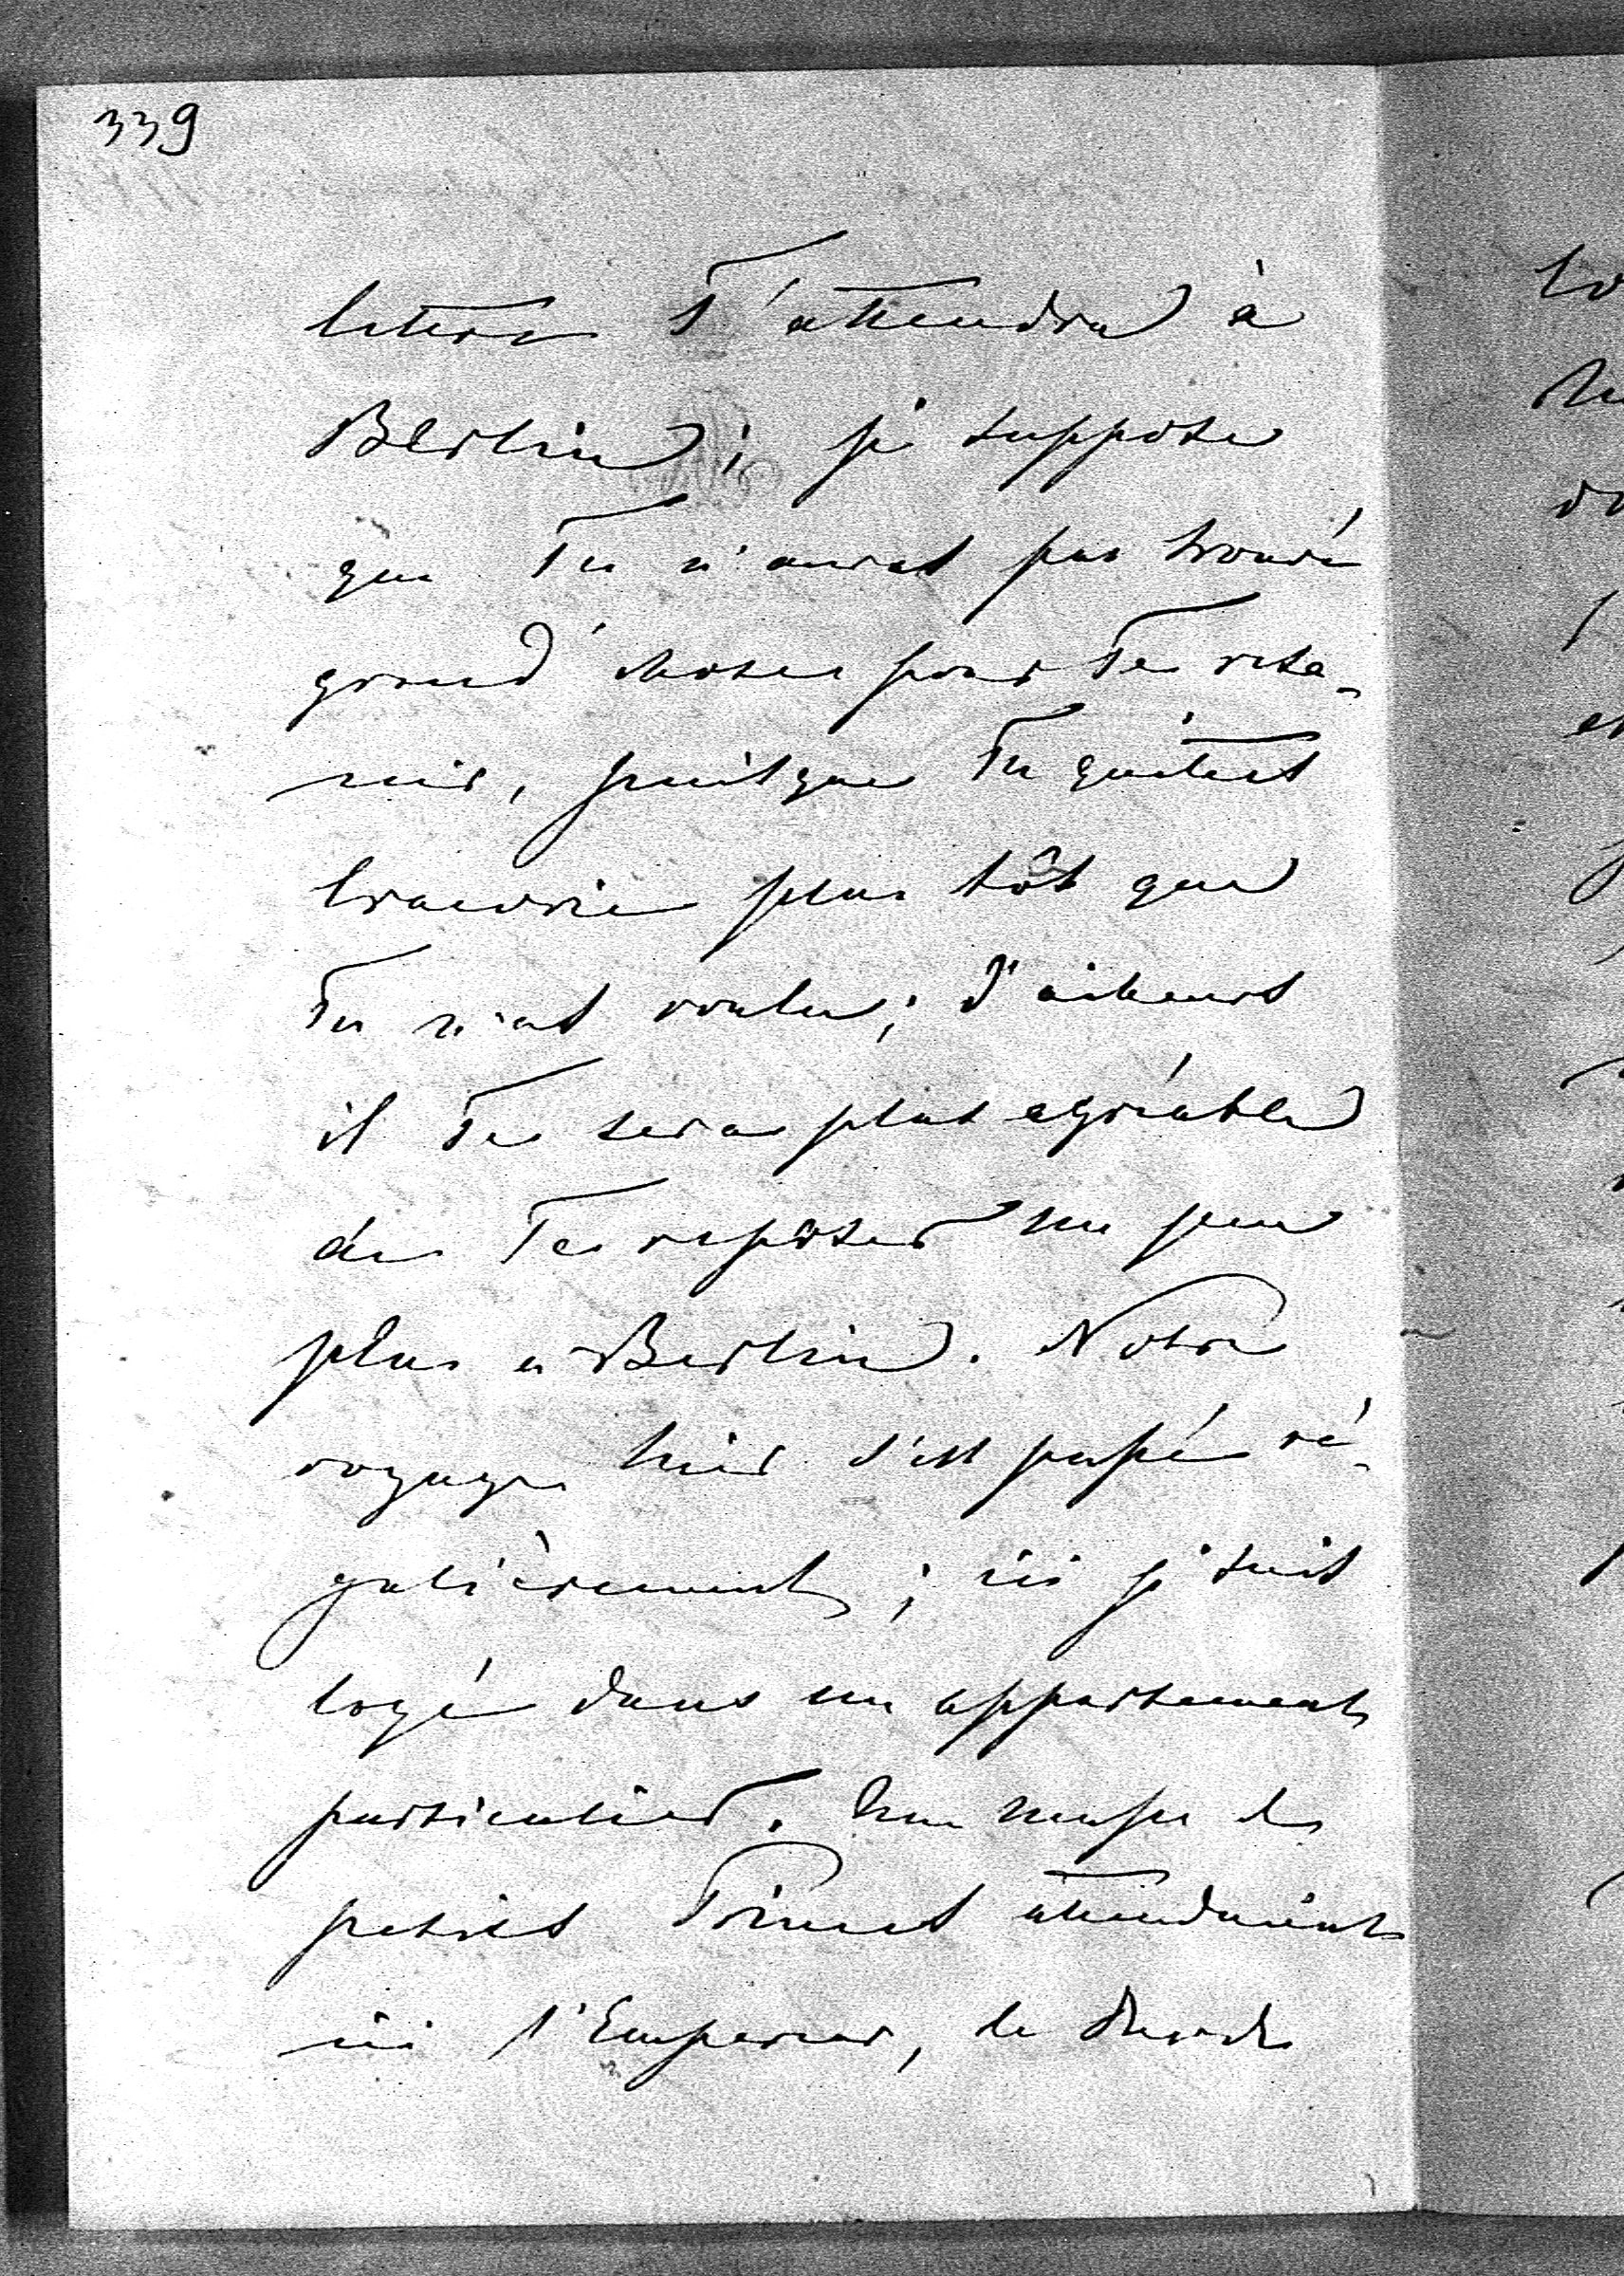 339
lettre T'attendra à
Berlin; je suppose
que Tu n'auras pas trouvé
grand'chose pour Te rete-
nir, puisque Tu quittes
plus tôt que
Tu n'as voulu; d'ailleurs
il Te sera plus agréable
de Te reposer un peu
plus à Berlin. Notre
voyage hier s'est passé ré-
gulièrement; ici je suis
logé dans un appartement
particulier. Une masse de
petits Princes attendaient
ici l'Empereur, le